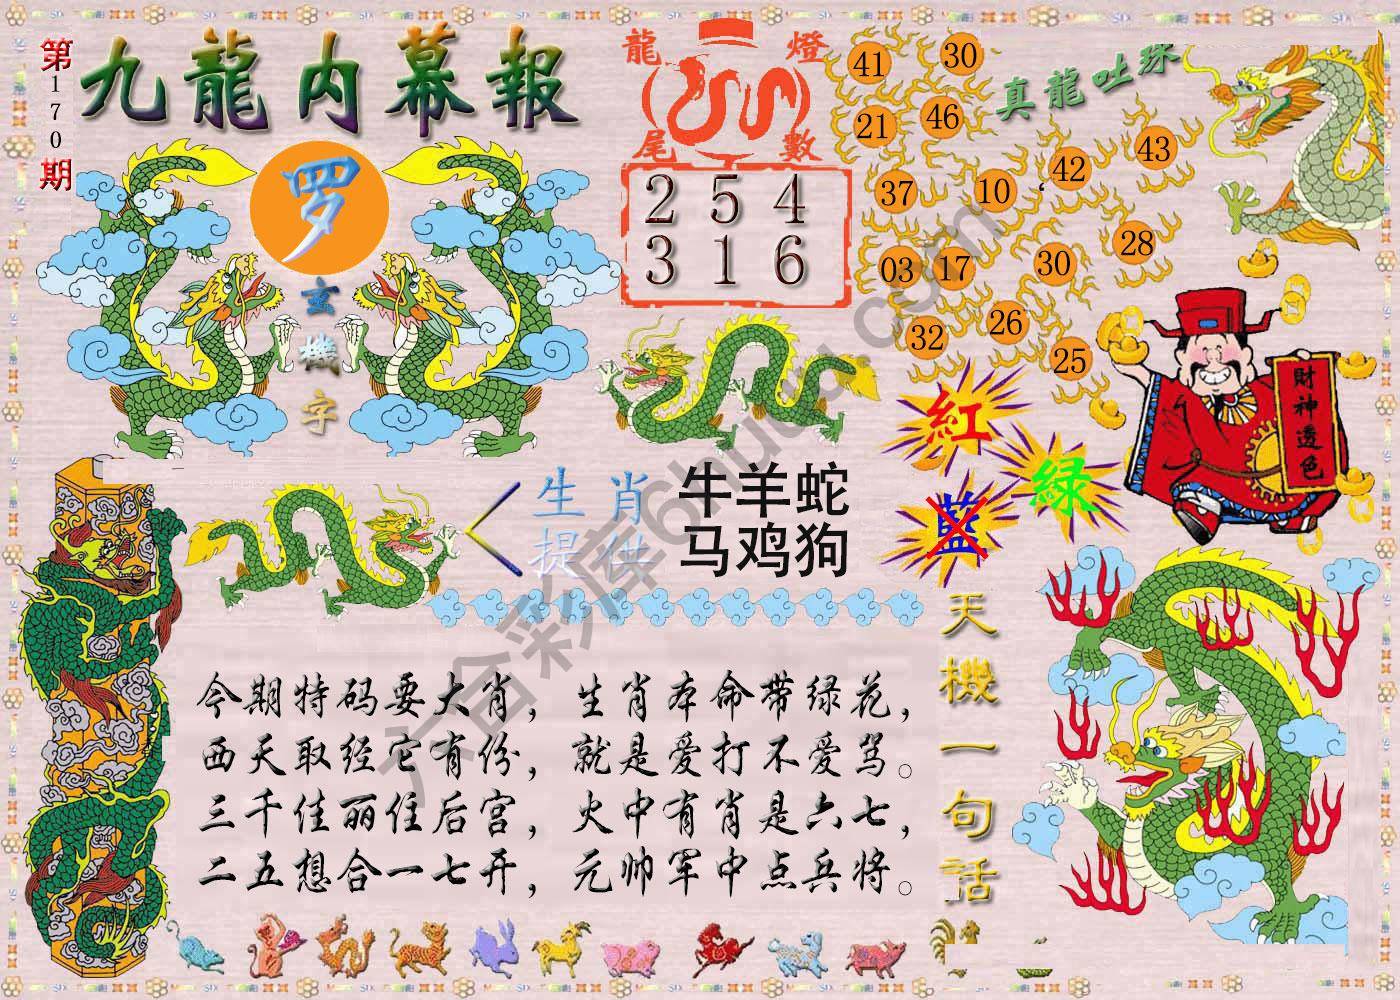 第170期
九龍内幕報
罗
玄機字
龍燈
尾數
2 5 4
3 1 6
真龍吐珠
41 30
21 46
37 10 42 43
03 17 30 28
32 26 25
財神透色
紅
绿
藍
生肖 牛羊蛇
提供 马鸡狗
今期特码要大肖，生肖本命带绿花，
西天取经它有份，就是爱打不爱骂。
三千佳丽住后宫，火中有肖是六七，
二五想合一七开，元帅军中点兵将。
天機一句話
六合彩库6huu.com